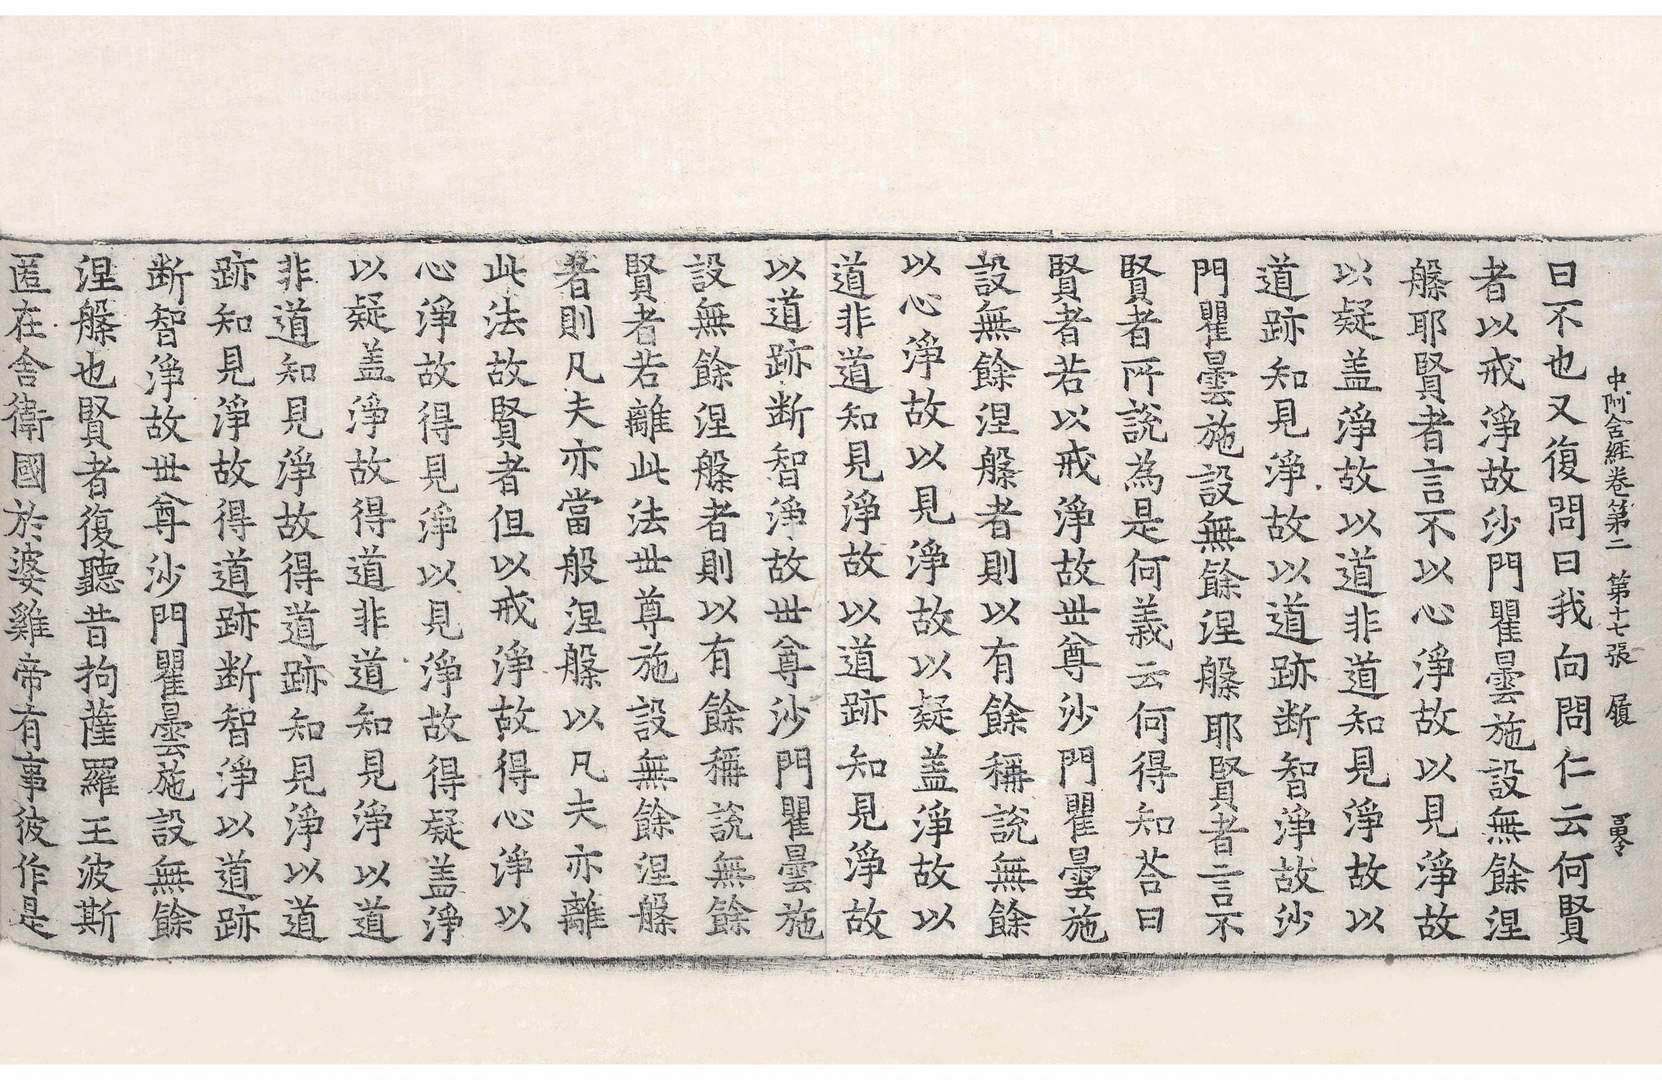 中阿含經卷第二 第十七張 履
曰不也又復問曰我向問仁云何賢
者以戒淨故沙門瞿曇施設無餘涅
槃耶賢者言不以心淨故以見淨故
以疑盖淨故以道非道知見淨故以
道跡知見淨故以道跡断智淨故沙
門瞿曇施設無餘涅槃耶賢者言不
賢者所說為是何義云何得知荅曰
賢者若以戒淨故世尊沙門瞿曇施
設無餘涅槃者則以有餘稱說無餘
以心淨故以見淨故以疑盖淨故以
道非道知見淨故以道跡知見淨故
以道跡断智淨故世尊沙門瞿曇施
設無餘涅槃者則以有餘稱說無餘
賢者若離此法世尊施設無餘涅槃
者則凡夫亦當般涅槃以凡夫亦離
此法故賢者但以戒淨故得心淨以
心淨故得見淨以見淨故得疑盖淨
以疑盖淨故得道非道知見淨以道
非道知見淨故得道跡知見淨以道
跡知見淨故得道跡断智淨以道跡
断智淨故世尊沙門瞿曇施設無餘
涅槃也賢者復聽昔拘薩羅王波斯
匿在舍衛國於婆雞帝有事彼作是